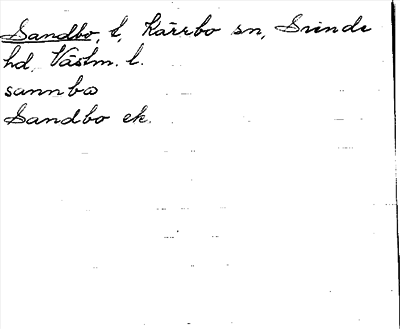 Sandbo, t, Kärrbo sn, Siende
hd, Västm. l.
sannbω
Sandbo ek.